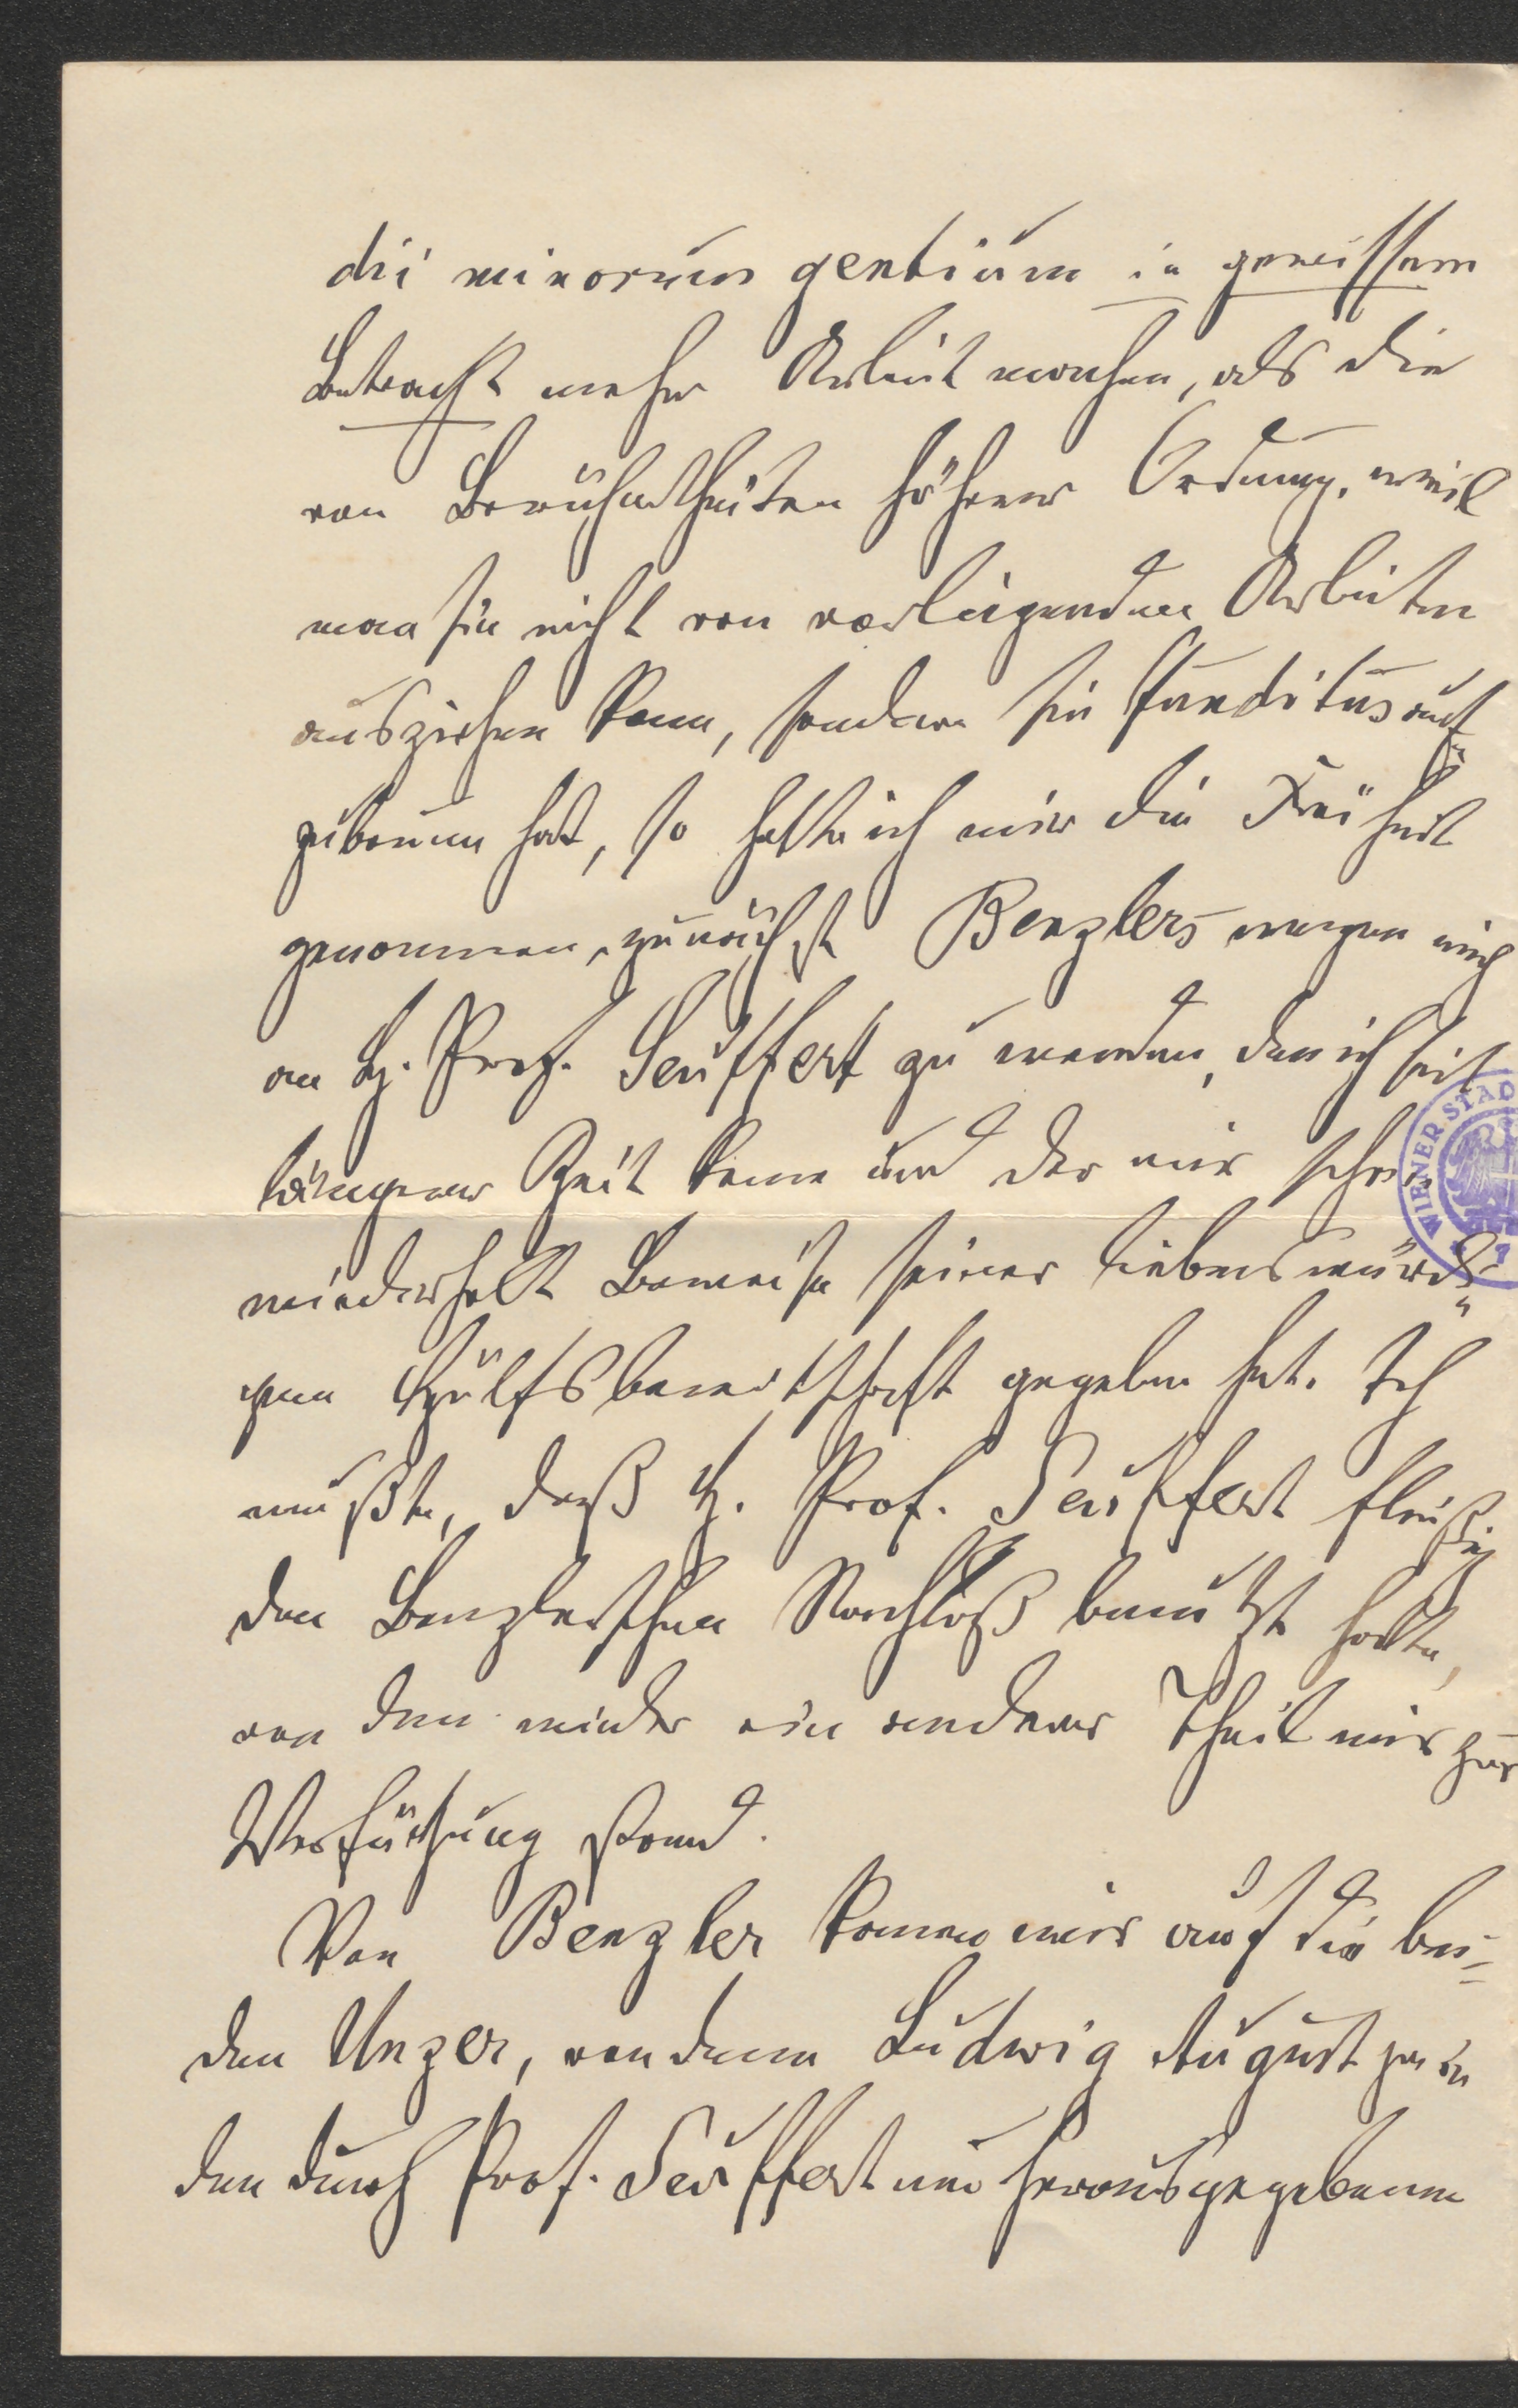 dii minorum gentium in gewissem
Betracht mehr Arbeit machen, als die
von Berühmtheiten höherer Ordnung, weil
man sie nicht von vorliegenden Arbeiten
ausziehen kann, sondern sie funditus auf-
zubauen hat, so hatte ich mir die Freiheit
genommen, zunächst Benzlers wegen mich
an H. Prof. Seuffert zu wenden, den ich seit
längerer Zeit kenne und der mir schon
wiederholt Beweise seiner liebenswürdi-
gen Hülfsbereitschaft gegeben hat. Ich
wußte, daß H. Prof. Seuffert fleißig
den Benzlerschen Nachlaß benutzt hatte,
von dem wieder ein anderer Theil mir zur
Verfügung stand.
Von Benzler kamen wir auf die bei-
den Unzer, von denen Ludwig August ja in
den durch Prof. Seuffert neu herausgegebenen
WIENER STAD